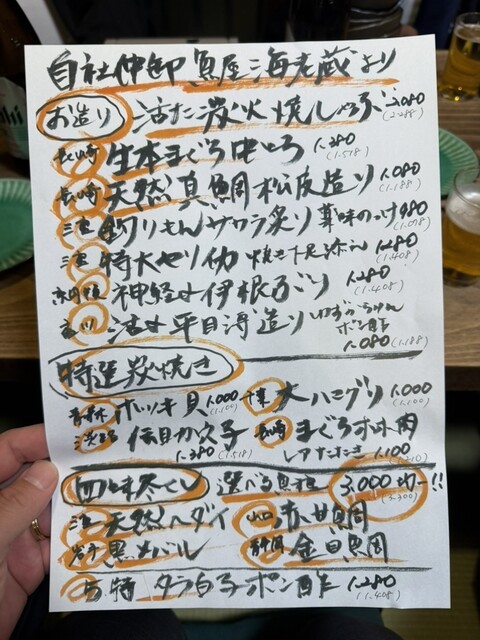 自社仲卸 魚屋海老蔵より
お造り 活た炭火焼しゃぶ 2.080 (2.288)
長崎 生本まぐろ中とろ 1.380 (1.518)
長崎 天然真鯛松皮造り 1.080 (1.188)
三重 釣りもんサワラ炙り 薬味のっけ 980 (1.078)
三重 特大ヤリイカ 焼き下足添え 1.280 (1.408)
神経〆伊根ぶり 1.280 (1.408)
香川 活〆平目薄造り ポン酢 1.080 (1.188)
特選炭焼き
青森 ホッキ貝 1.000 (1.100) 千葉 大ハマグリ 1.000 (1.100)
淡路 伝助穴子 1.380 (1.518) 長崎 まぐろホホ肉 レアたたき 1.100 (1.210)
四味尽くし 選べる魚種 3.000 (3.300) 均一!!
三重 天然ヘダイ 山口 赤甘鯛
岩手 黒メバル 静岡 金目鯛
お特 タラ白子ポン酢 1.280 (1.408)